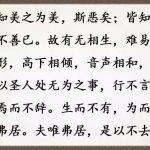 知美之为美，斯恶矣；皆知
不善已。故有无相生，难易
形，高下相倾，音声相和，
以圣人处无为之事，行不言
焉而不辞。生而不有，为而
弗居。夫唯弗居，是以不去